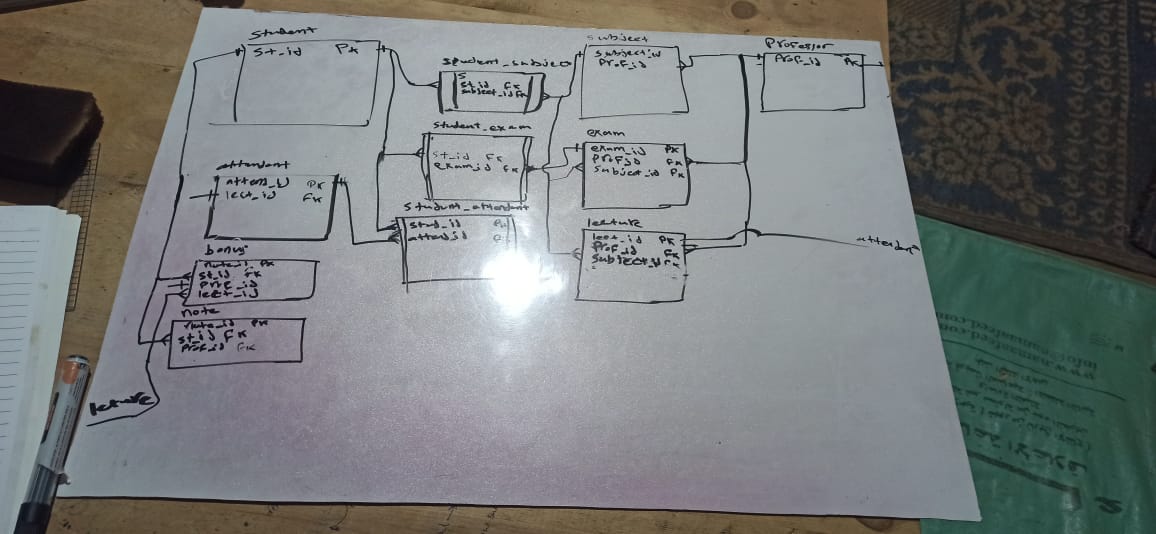 student
St_id PK
student_subject
S
st_id FK
subject_id FK
subject
subject_id
Prof_id
Professor
Prof_id PK
student_exam
st_id FK
exam_id FK
exam
exam_id PK
Prof_id FK
subject_id PK
attendant
attend_id PK
lect_id FK
student_attendant
stud_id
attend_id
lecture
lect_id PK
Prof_id FK
subject_id FK
attendant
bonus
PK
st_id FK
Prof_id
lect_id
note
note_id PK
st_id FK
Prof_id FK
lecture